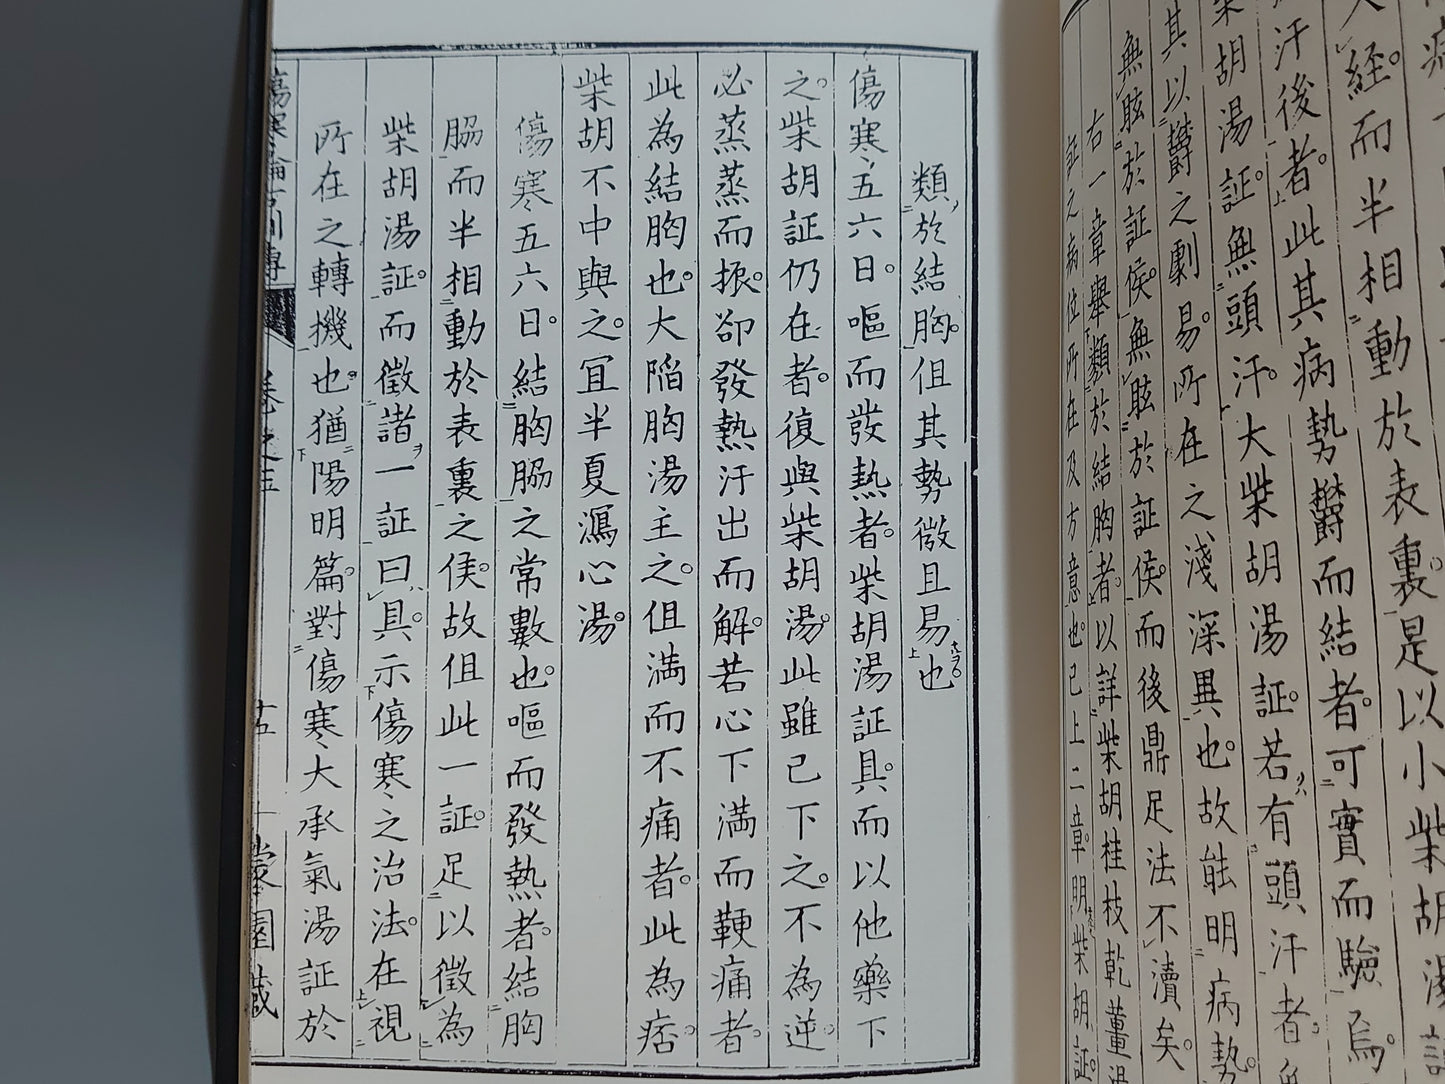 経而半相動於表裏。是以小柴胡湯
汗後者。此其病勢欝而結者。可實而驗焉。
柴胡湯証。無頭汗。大柴胡湯証。若有頭汗者
其以欝之劇易。所在之淺深異也。故能明病勢。
無眩於証候。無眩於証候。而後鼎足法不瀆矣。
右一章擧類於結胸者。以詳柴胡桂枝乾薑湯
証之病位所在及方意也。已上二章。明柴胡証。
類於結胸。但其勢微且易也
傷寒、五六日。嘔而發熱者。柴胡湯証具。而以他藥下
之。柴胡証仍在者。復與柴胡湯。此雖已下之。不為逆。
必蒸蒸而振。卻發熱汗出而解。若心下満而鞕痛者。
此為結胸也。大陷胸湯主之。但満而不痛者。此為痞。
柴胡不中與之。宜半夏瀉心湯。
傷寒、五六日。結胸脇之常數也。嘔而發熱者。結胸
脇而半相動於表裏之候。故但此一証。足以徵為
柴胡湯証。而徵諸一証曰、具。示傷寒、之治法。在視
所在之轉機也。猶陽明篇。對傷寒、大承氣湯証於
傷寒論古訓傳 卷之五 十五 蒙園藏